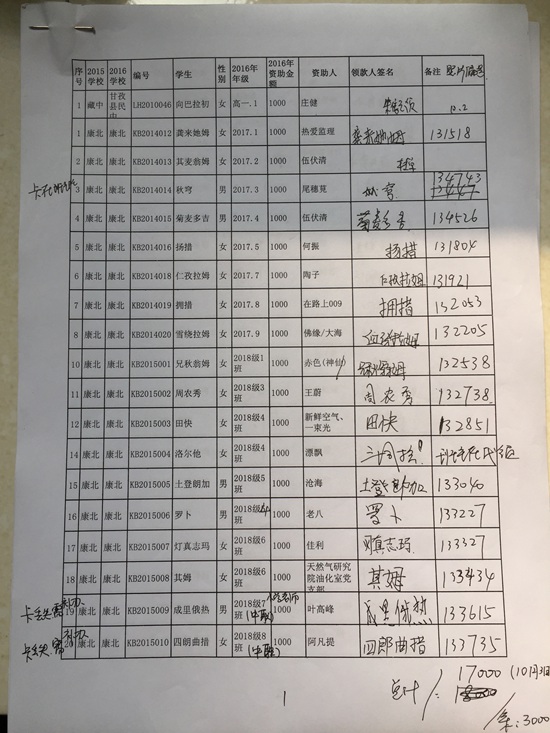 序号 2015学校 2016学校 编号 学生 性别 2016年年级 2016年资助金额 资助人 领款人签名 备注
1 藏中 甘孜县民中 LH2010046 向巴拉初 女 高一.1 1000 庄健
1 康北 康北 KB2014012 龚来她姆 女 2017.1 1000 热爱监理 131518
2 康北 康北 KB2014013 其麦翁姆 女 2017.2 1000 伍伏清
3 康北 康北 KB2014014 秋穹 男 2017.3 1000 尾穗苋 134743
4 康北 康北 KB2014015 菊麦多吉 男 2017.4 1000 伍伏清 134526
5 康北 康北 KB2014016 扬措 女 2017.5 1000 何振 扬措 131804
6 康北 康北 KB2014018 仁孜拉姆 女 2017.7 1000 陶子 仁孜拉姆 131921
7 康北 康北 KB2014019 拥措 女 2017.8 1000 在路上009 拥措 132053
8 康北 康北 KB2014020 雪绕拉姆 女 2017.9 1000 佛缘/大海 132205
10 康北 康北 KB2015001 兄秋翁姆 女 2018级1班 1000 赤色(神仙) 132538
11 康北 康北 KB2015002 周农秀 女 2018级3班 1000 王蔚 周农秀 132738
12 康北 康北 KB2015003 田快 女 2018级4班 1000 新鲜空气、一束光 田快 132851
14 康北 康北 KB2015004 洛尔他 女 2018级4班 1000 漂飘
15 康北 康北 KB2015005 土登朗加 男 2018级5班 1000 沧海 土登朗加 133040
16 康北 康北 KB2015006 罗卜 男 2018级4班 1000 老八 罗卜 133227
17 康北 康北 KB2015007 灯真志玛 女 2018级6班 1000 佳利 133327
18 康北 康北 KB2015008 其姆 女 2018级6班 1000 天然气研究院油化室党支部 其姆 133434
19 康北 康北 KB2015009 成里俄热 男 2018级7班 1000 叶高峰 成里俄热 133615
20 康北 康北 KB2015010 四朗曲措 女 2018级8班 1000 阿凡提 四郎曲措 133735
总计 17000 (10月31日
余:3000
1